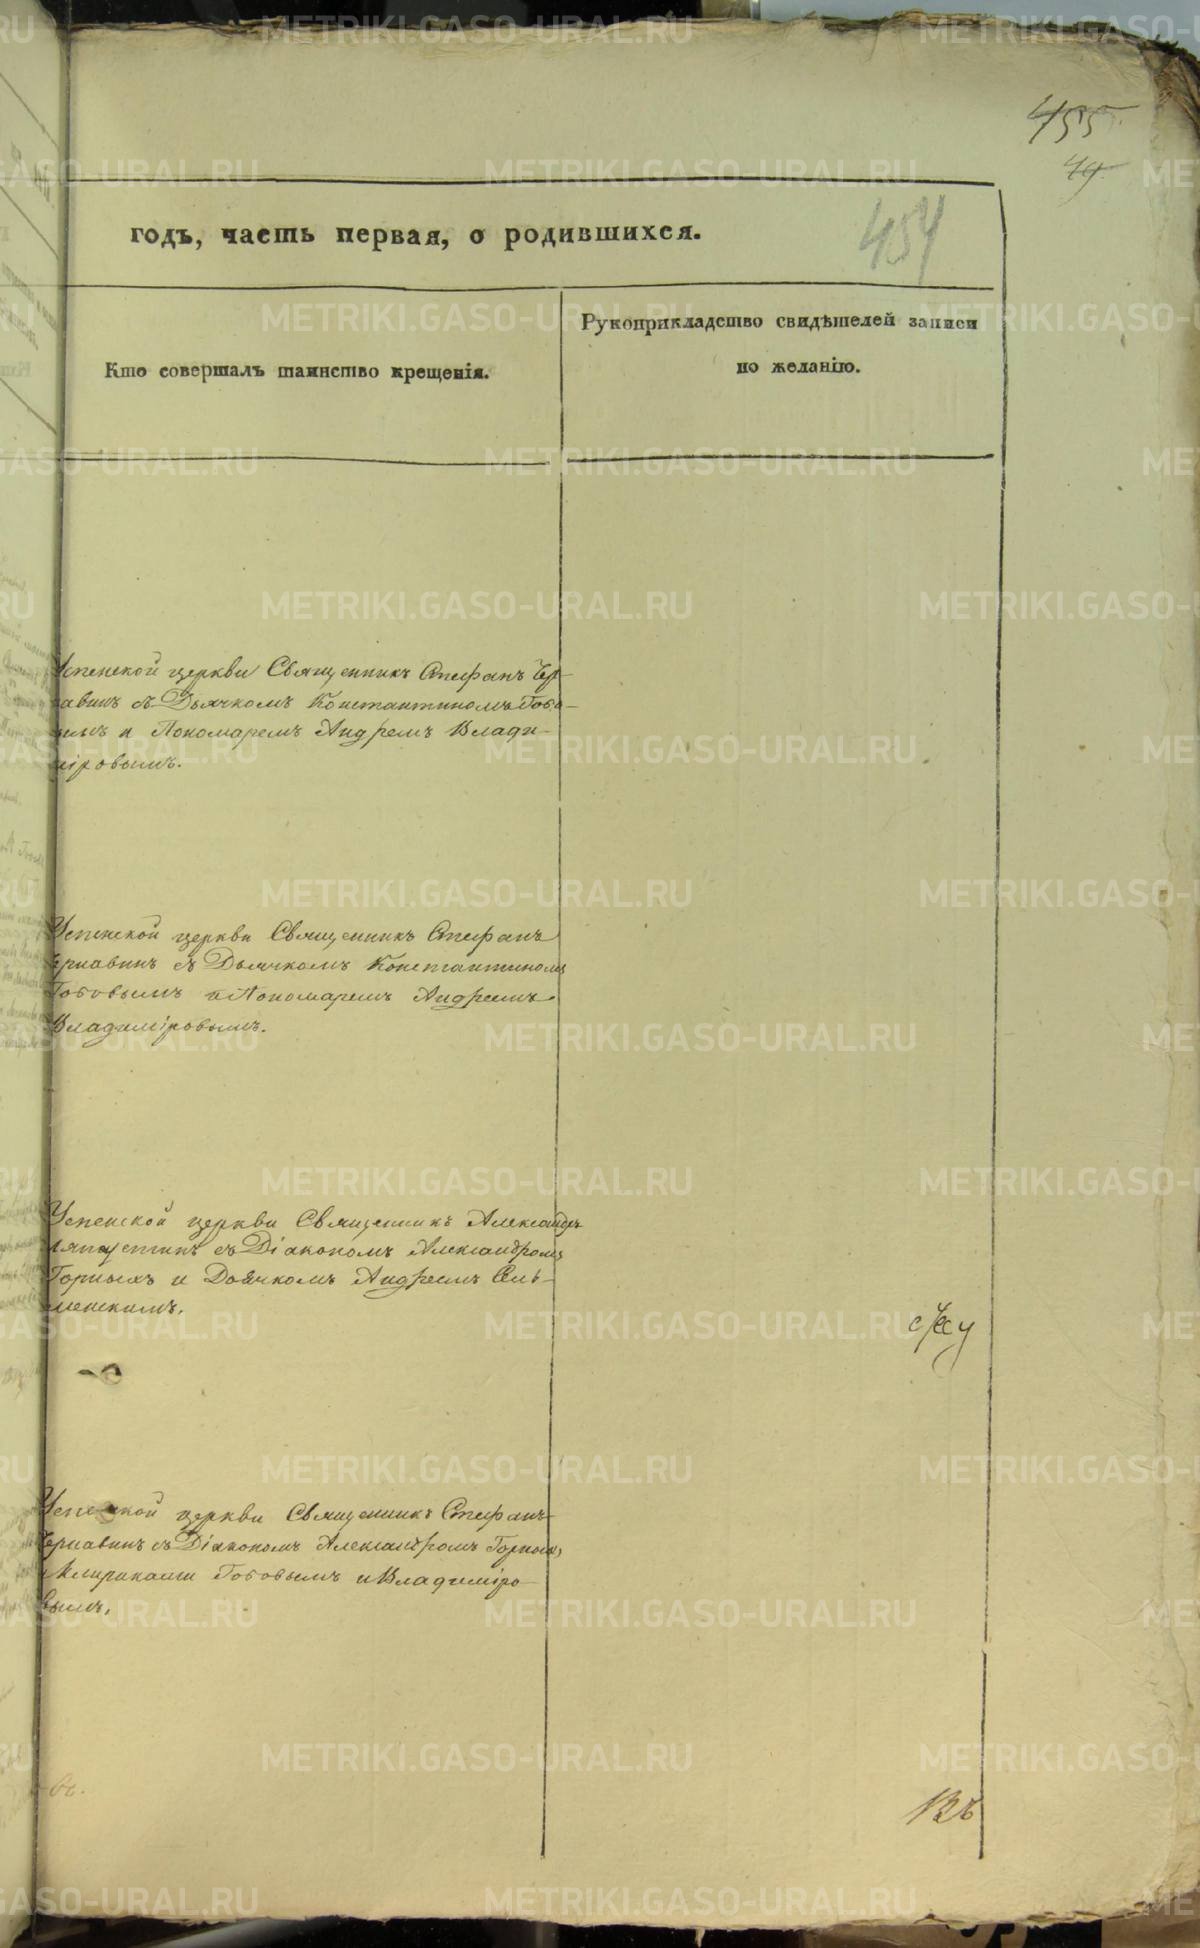 455
49
454
годъ, часть первая, о родившихся.
Кто совершалъ таинство крещенія.
Рукоприкладство свидѣтелей записи
по желанію.
Успенской церкви Священникъ Стефанъ Чер-
навинъ съ Дьячкомъ Константиномъ Гобо-
вымъ и Пономаремъ Андреемъ Влади-
міровымъ.
Успенской церкви Священникъ Стефанъ
Чернавинъ съ Дьячкомъ Константиномъ
Гобовымъ и Пономаремъ Андреемъ
Владиміровымъ.
Успенской церкви Священникъ Александръ
съ Діакономъ Александромъ
Горныхъ и Дьячкомъ Андреемъ
Успенской церкви Священникъ Стефанъ
Чернавинъ съ Діакономъ Александромъ Горныхъ
Гобовымъ и Владиміро-
вымъ.
METRIKI.GASO-URAL.RU